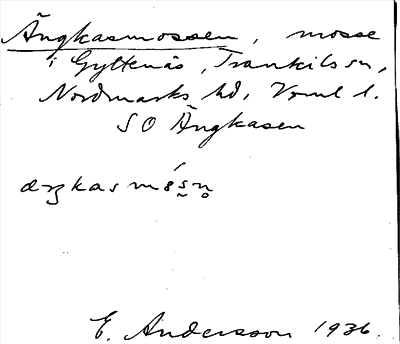 Ängkasmossen, mosse
i Gyltenäs, Trankils sn,
Nordmarks hd, Vrml l.
SO Ängkasen
E. Andersson 1936.